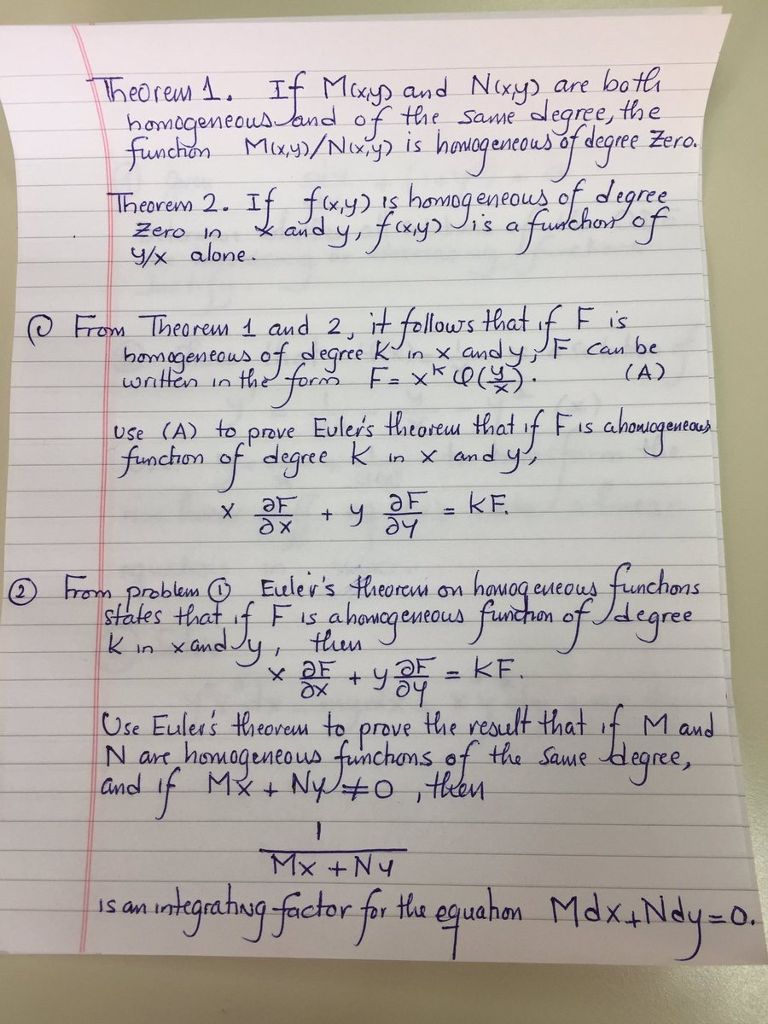 Theorem 1. If M(x,y) and N(x,y) are both
homogeneous and of the same degree, the
function M(x,y)/N(x,y) is homogeneous of degree zero.
Theorem 2. If f(x,y) is homogeneous of degree
zero in x and y, f(x,y) is a function of
y/x alone.
① From Theorem 1 and 2, it follows that if F is
homogeneous of degree K in x and y, F can be
written in the form F = x^K φ(y/x). (A)
Use (A) to prove Euler's theorem that if F is a homogeneous
function of degree K in x and y,
x ∂F/∂x + y ∂F/∂y = KF.
② From problem ① Euler's theorem on homogeneous functions
states that if F is a homogeneous function of degree
K in x and y, then
x ∂F/∂x + y ∂F/∂y = KF.
Use Euler's theorem to prove the result that if M and
N are homogeneous functions of the same degree,
and if Mx + Ny ≠ 0, then
1
Mx + Ny
is an integrating factor for the equation Mdx+Ndy=0.